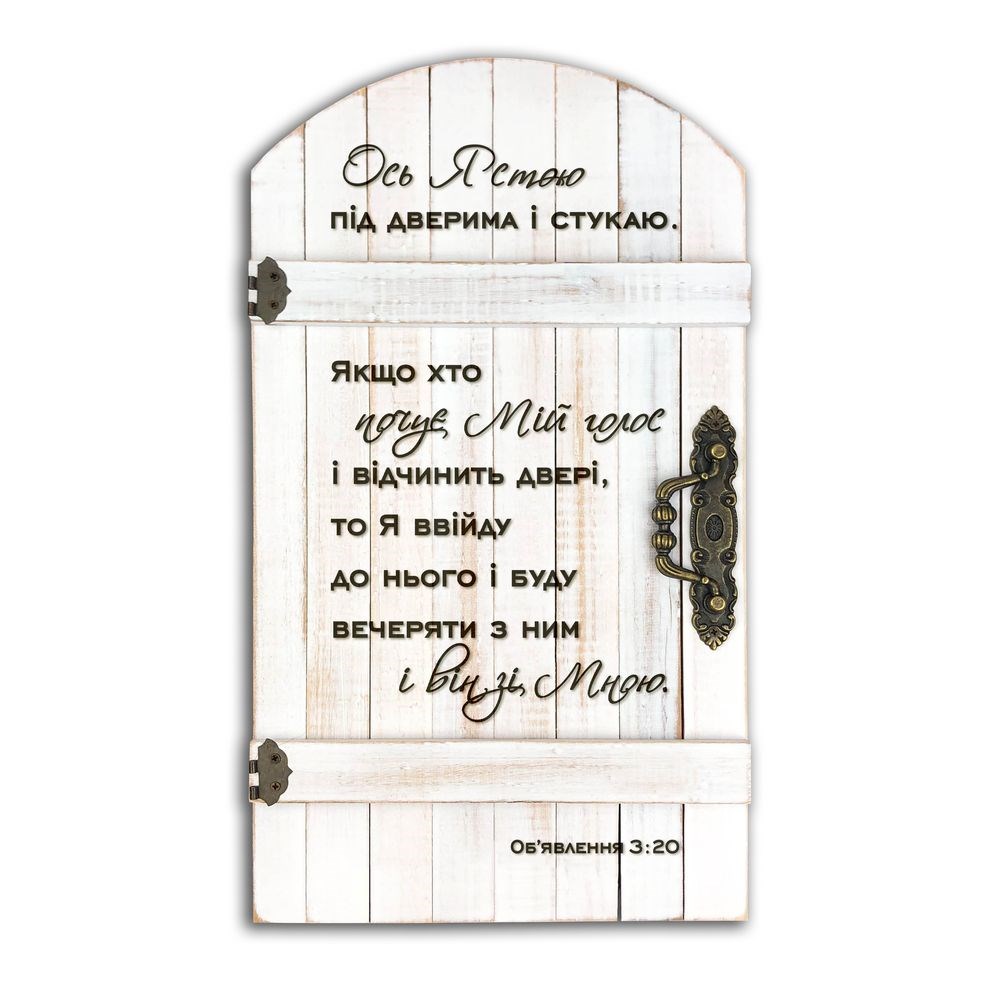 Ось Я стою
під дверима і стукаю.
Якщо хто
почує Мій голос
і відчинить двері,
то Я ввійду
до нього і буду
вечеряти з ним
і він зі Мною.
Об'явлення 3:20